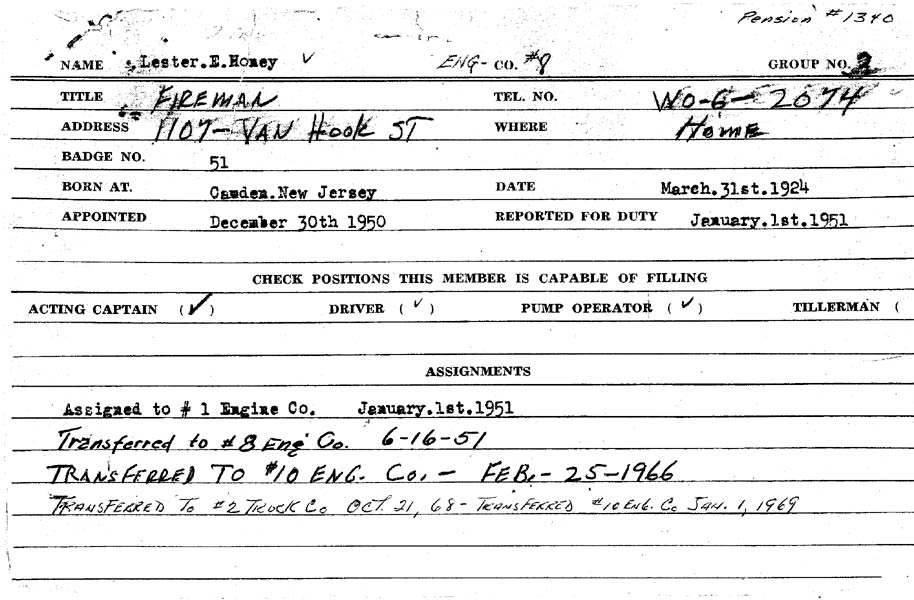 Pension #1340
NAME Lester.E.Homey ✓ ENG- CO. #8 GROUP NO.
TITLE FIREMAN TEL. NO. WO-6-2074
ADDRESS 1107- VAN HOOK ST WHERE HOME
BADGE NO. 51
BORN AT. Camden.New Jersey DATE March.31st.1924
APPOINTED December 30th 1950 REPORTED FOR DUTY January.1st.1951
CHECK POSITIONS THIS MEMBER IS CAPABLE OF FILLING
ACTING CAPTAIN (✓) DRIVER (✓) PUMP OPERATOR (✓) TILLERMAN (
ASSIGNMENTS
Assigned to # 1 Engine Co. January.1st.1951
Transferred to #8 Eng Co. 6-16-51
TRANSFERRED TO #10 ENG. Co. - FEB. - 25-1966
TRANSFERRED TO #2 TRUCK Co OCT. 21, 68 - TRANSFERRED #10 ENG. Co JAN. 1, 1969